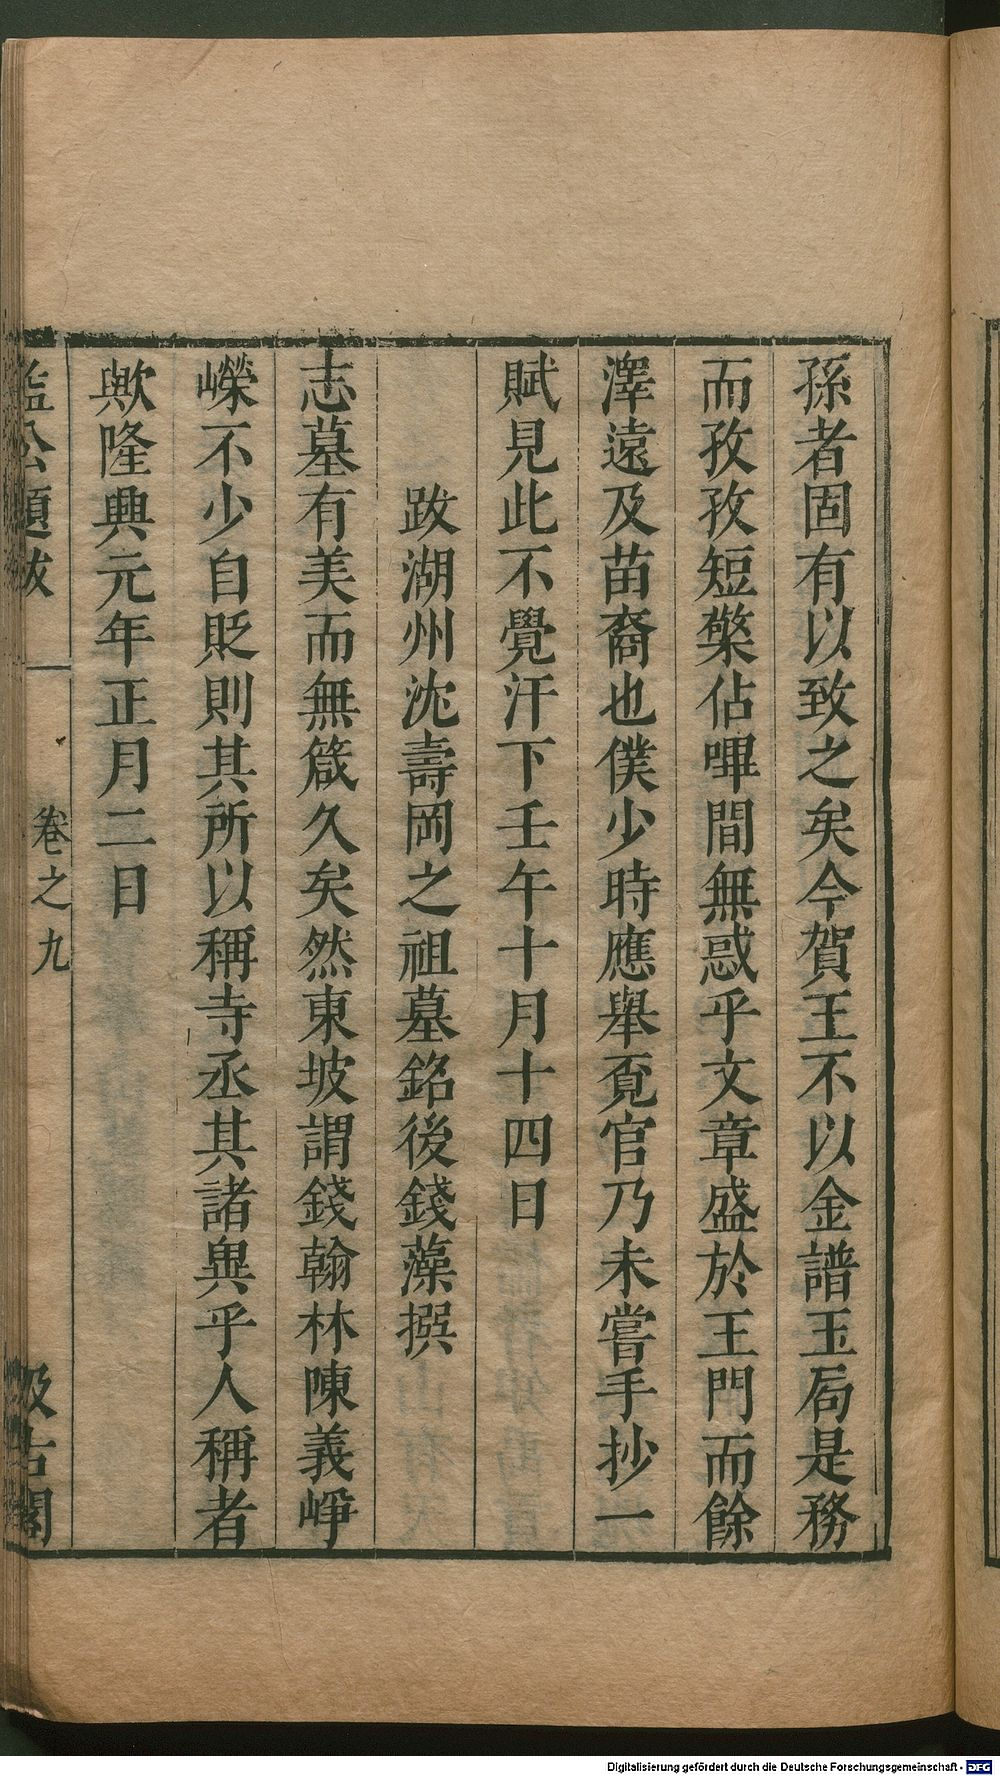 孫者固有以致之矣今賀王不以金譜玉局是務
而孜孜短檠佔嗶間無惑乎文章盛於王門而餘
澤遠及苗裔也僕少時應舉覔官乃未嘗手抄一
賦見此不覺汗下壬午十月十四日
跋湖州沈壽岡之祖墓銘後錢藻撰
志墓有美而無箴久矣然東坡謂錢翰林陳義崢
嶸不少自貶則其所以稱寺丞其諸異乎人稱者
歟隆興元年正月二日
益公題跋
卷之九
汲古閣
Digitalisierung gefördert durch die Deutsche Forschungsgemeinschaft - DFG